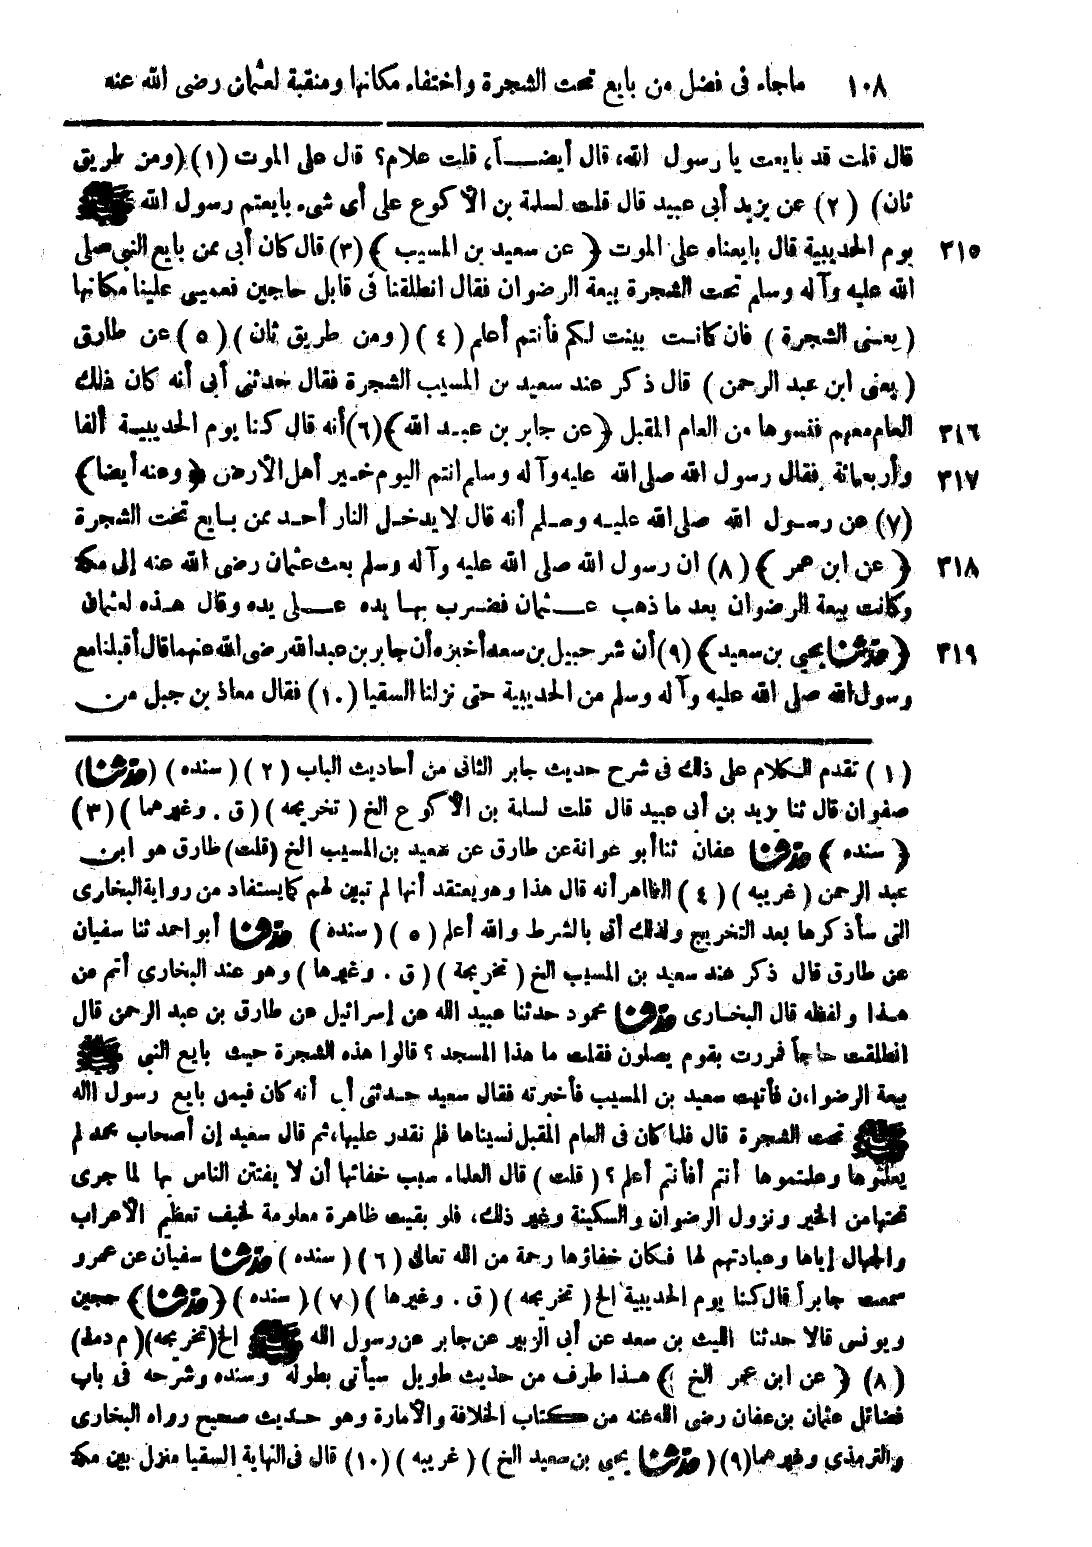 ١٠٨ ماجاء فى فضل من بايع تحت الشجرة واختفاء مكانها ومنقبة لعثمان رضى الله عنه
قال قلت قد بايعت يا رسول الله، قال أيضـــاً، قلت علام؟ قال على الموت (١) (ومن طريق
ثان) (٢) عن يزيد أبى عبيد قال قلت لسلمة بن الأكوع على أى شىء بايعتم رسول الله ﷺ
٣١٥ يوم الحديبية قال بايعناه على الموت ﴿ عن سعيد بن المسيب ﴾ (٣) قال كان أبى ممن بايع النبى صلى
الله عليه وآله وسلم تحت الشجرة بيعة الرضوان فقال انطلقنا فى قابل حاجين فعميى علينا مكانها
( يعنى الشجرة ) فان كانت بينت لكم فأنتم أعلم (٤) (ومن طريق ثان ) (٥) عن طارق
( يعنى ابن عبد الرحمن ) قال ذكر عند سعيد بن المسيب الشجرة فقال حدثنى أبى أنه كان ذلك
٣١٦ العام معهم فنسوها من العام المقبل ﴿عن جابر بن عبـد الله﴾ (٦) أنه قال كنا يوم الحديبيـة ألفا
٣١٧ وأربعمائة فقال رسول الله صلى الله عليه وآله وسلم انتم اليوم خـير أهل الأرض ﴿وعنه أيضا﴾
(٧) عن رسـول الله صلى الله عليـه وسلم أنه قال لا يدخـل النار أحـد ممن بـايع تحت الشجرة
٣١٨ ﴿ عن ابن عمر ﴾ (٨) ان رسول الله صلى الله عليه وآله وسلم بعث عثمان رضى الله عنه إلى مكة
وكانت بيعة الرضوان بعد ما ذهب عـــثمان فضرب بهـا يده عـــلى يده وقال هـذه لعثمان
٣١٩ ﴿ حدثنا يحيى بن سعيد ﴾ (٩) أن شرحبيل بن سعد أخبره أن جابر بن عبد الله رضى الله عنهما قال أقبلنا مع
رسول الله صلى الله عليه وآله وسلم من الحديبية حتى نزلنا السقيا (١٠) فقال معاذ بن جبل من
(١) تقدم الكلام على ذلك فى شرح حديث جابر الثانى من أحاديث الباب (٢) (سنده) (حدثنا)
صفوان قال ثنا يزيد بن أبى عبيد قال قلت لسلمة بن الأكوع الخ ( تخريجه ) (ق . وغيرهما ) (٣)
﴿ سنده ﴾ حدثنا عفان ثنا أبو عوانة عن طارق عن سعيد بن المسيب الخ (قلت) طارق هو ابن
عبد الرحمن ( غريبه ) (٤) الظاهر أنه قال هذا وهو يعتقد أنها لم تبين لهم كما يستفاد من رواية البخارى
التى سأذكرها بعد التخريج ولذلك أتى بالشرط والله أعلم (٥) ( سنده ) حدثنا أبو احمد ثنا سفيان
عن طارق قال ذكر عند سعيد بن المسيب الخ ( تخريجه ) (ق . وغيرها ) وهو عند البخارى أتم من
هـذا ولفظه قال البخـارى حدثنا محمود حدثنا عبيد الله عن إسرائيل عن طارق بن عبد الرحمن قال
انطلقت حاجاً فمررت بقوم يصلون فقلت ما هذا المسجد ؟ قالوا هذه الشجرة حيث بايع النبى ﷺ
بيعة الرضوان فأتيت سعيد بن المسيب فأخبرته فقال سعيد حـدثنى أبى أنه كان فيمن بايع رسول الله
ﷺ تحت الشجرة قال فلما كان فى العام المقبل نسيناها فلم نقدر عليها، ثم قال سعيد إن أصحاب محمد لم
يعلموها وعلمتموها أنتم أفأنتم أعلم ؟ ( قلت ) قال العلماء سبب خفائها أن لا يفتتن الناس بها لما جرى
تحتها من الخير ونزول الرضوان والسكينة وغير ذلك، فلو بقيت ظاهرة معلومة لخيف تعظيم الأعراب
والجهال إياها وعبادتهم لها فكان خفاؤها رحمة من الله تعالى (٦) ( سنده ) حدثنا سفيان عن عمرو
سمعت جابراً قال كنا يوم الحديبية الخ ( تخريجه ) (ق . وغيرها ) (٧) ( سنده ) ﴿حدثنا﴾ حجين
ويونس قالا حدثنا الليث بن سعد عن أبى الزبير عن جابر عن رسول الله ﷺ الخ (تخريجه) (م د مذ)
(٨) ﴿ عن ابن عمر الخ ﴾ هـذا طرف من حديث طويل سيأتى بطوله وسنده وشرحه فى باب
فضائل عثمان بن عفان رضى الله عنه من كتاب الخلافة والأمارة وهو حـديث صحيح رواه البخارى
والترمذى وغيرهما (٩) ( حدثنا يحيى بن سعيد الخ ) ( غريبه ) (١٠) قال فى النهاية السقيا منزل بين مكة